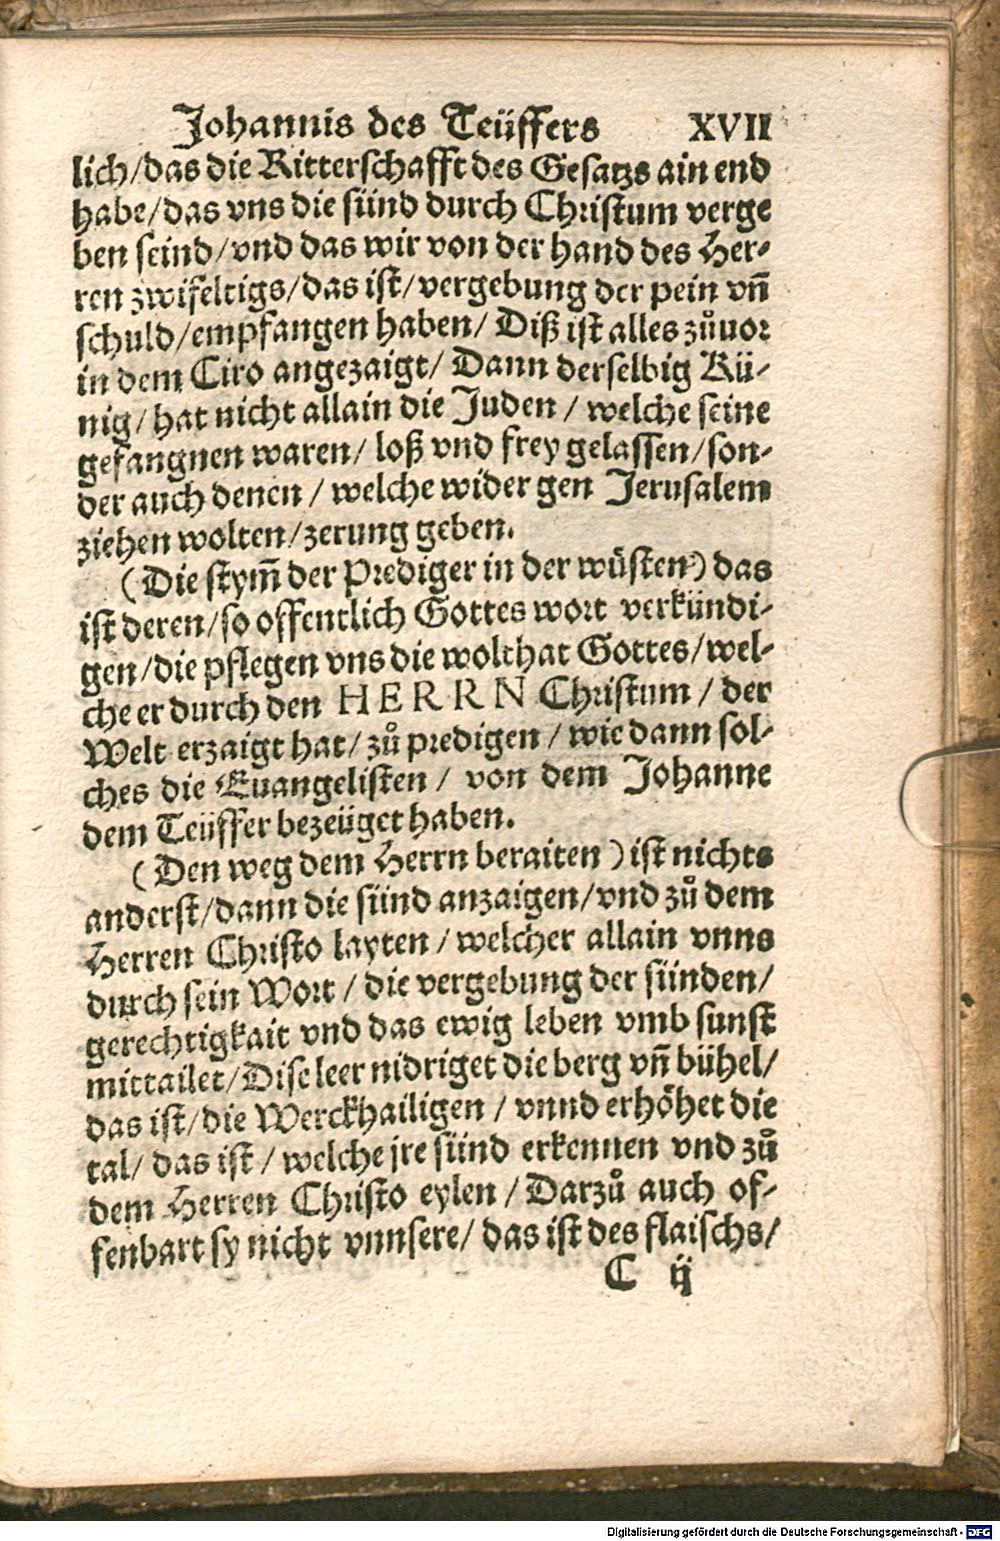 Johannis des Teüffers XVII
lich/das die Ritterschafft des Gesatzs ain end
habe/das vns die sünd durch Christum verge
ben seind/vnd das wir von der hand des Her-
ren zwifeltigs/das ist/vergebung der pein vn̄
schuld/empfangen haben/ Diß ist alles zůuor
in dem Ciro angezaigt/ Dann derselbig Kü-
nig/hat nicht allain die Juden / welche seine
gefangnen waren/ loß vnd frey gelassen/son-
der auch denen / welche wider gen Jerusalem
ziehen wolten/zerung geben.
(Die stym̄ der Prediger in der wüsten) das
ist deren/so offentlich Gottes wort verkündi-
gen/die pflegen vns die wolthat Gottes/wel-
che er durch den HERRN Christum / der
Welt erzaigt hat/ zů predigen / wie dann sol-
ches die Euangelisten / von dem Johanne
dem Teüffer bezeüget haben.
(Den weg dem Herrn beraiten) ist nichts
anderst/dann die sünd anzaigen/vnd zů dem
Herren Christo layten / welcher allain vnns
durch sein Wort / die vergebung der sünden/
gerechtigkait vnd das ewig leben vmb sunst
mittailet/Dise leer nidriget die berg vn̄ bühel/
das ist/die Werckhailigen / vnnd erhöhet die
tal/ das ist / welche jre sünd erkennen vnd zů
dem Herren Christo eylen / Darzů auch of-
fenbart sy nicht vnnsere/ das ist des flaischs/
C ij
Digitalisierung gefördert durch die Deutsche Forschungsgemeinschaft - DFG